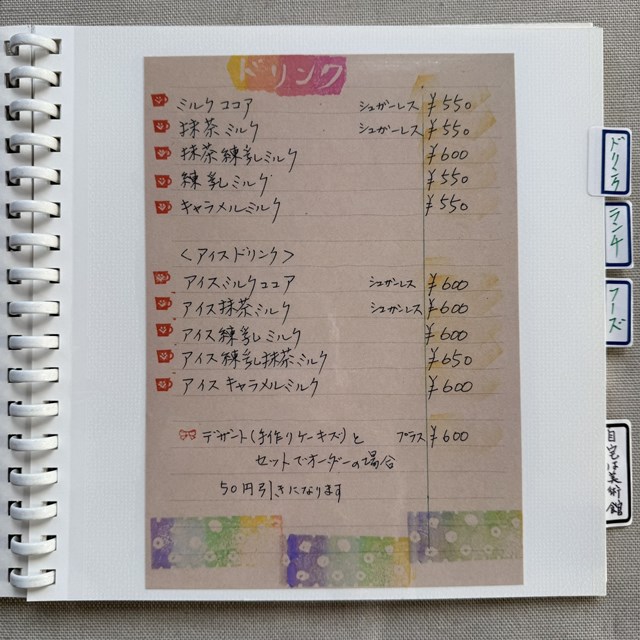 ドリンク
ミルクココア シュガーレス ¥550
抹茶ミルク シュガーレス ¥550
抹茶練乳ミルク ¥600
練乳ミルク ¥550
キャラメルミルク ¥550
〈アイスドリンク〉
アイスミルクココア シュガーレス ¥600
アイス抹茶ミルク シュガーレス ¥600
アイス練乳ミルク ¥600
アイス練乳抹茶ミルク ¥650
アイスキャラメルミルク ¥600
デザート(手作りケーキズ)と プラス ¥600
セットでオーダーの場合
50円引きになります
ドリンク
ランチ
フーズ
自宅は美術館